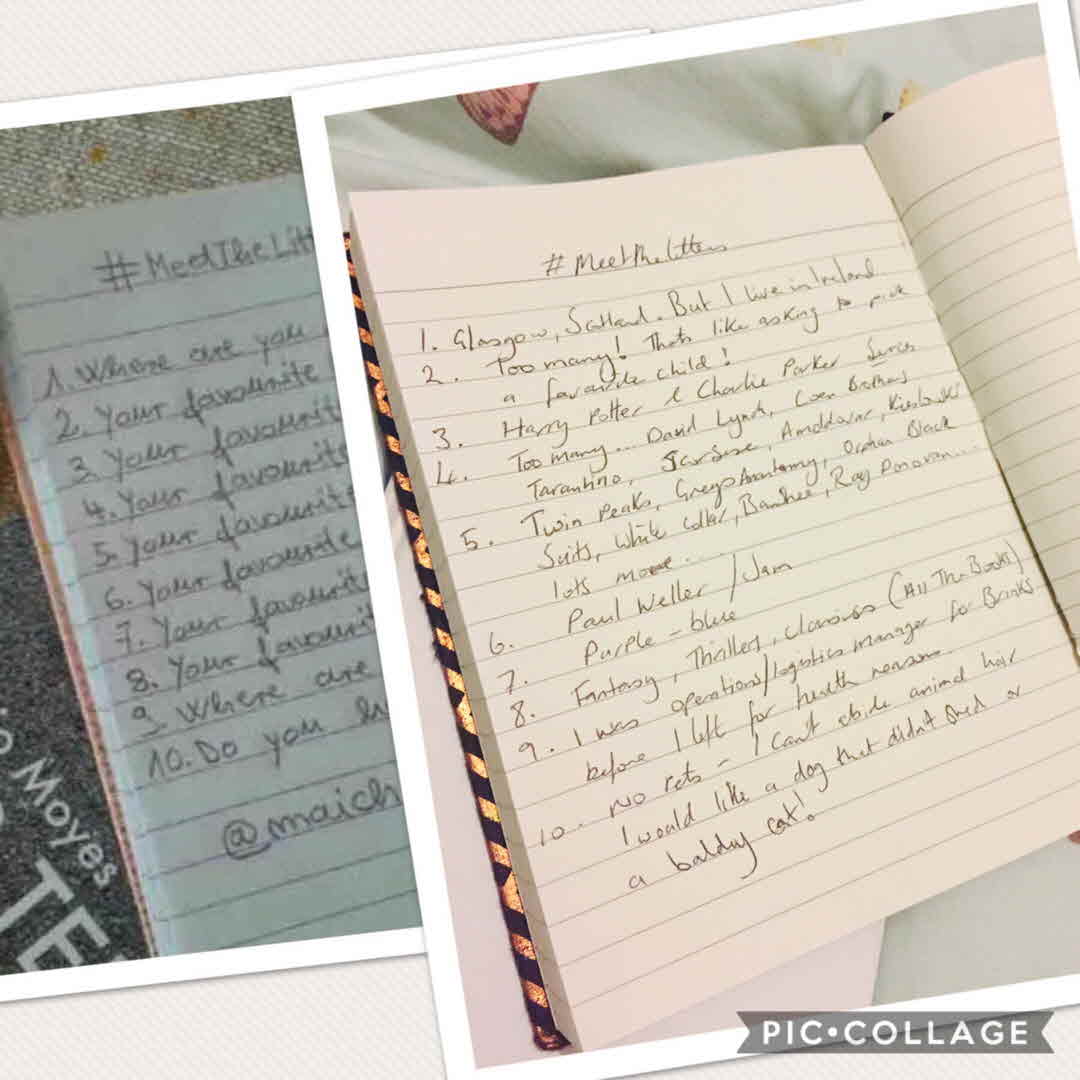 #MeetTheLitt
1. Where are you
2. Your favourite
3. Your favourit
4. Your favourit
5. Your favourit
6. Your favourite
7. Your favourit
8. Your favourit
9. Where are
10. Do you h
@maich
Moyes
#MeetTheLitters
1. Glasgow, Scotland. But I live in Ireland
2. Too many! Thats like asking to pick
a favourite child!
3. Harry Potter & Charlie Parker Series
4. Too many... David Lynch, Coen Brothers
Tarantino, Almodovar, Kieslowski
5. Twin Peaks, Greys Anatomy, Orphan Black
Suits, White Collar, Banshee, Ray Donovan...
lots more..
6. Paul Weller / Jam
7. Purple - blue
8. Fantasy, Thrillers, (All The Books)
9. I was operations/logistics manager for Brinks
before I left for health reasons
10. No pets - I can't abide animal hair
I would like a dog that didn't shed or
a baldy cat!
PIC•COLLAGE